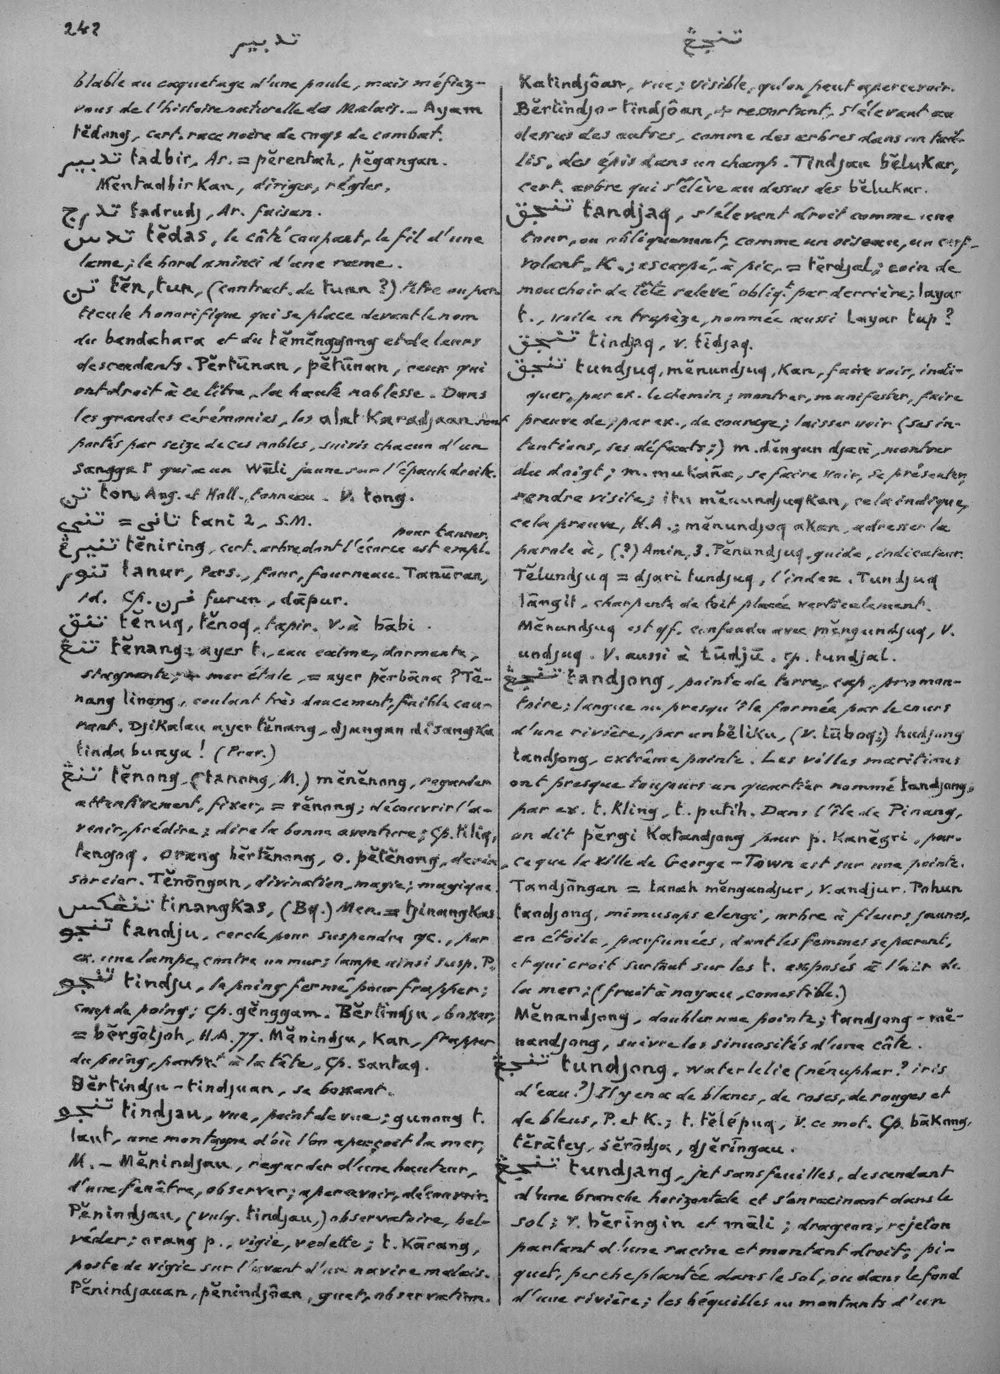 242
تدبير
تنجڠ
blable au caquetage d'une poule, mais méfiez-
vous de l'histoire naturelle des Malais. — Ayam
tĕdong, cert. race noire de coqs de combat.
تدبير tadbir, Ar. = pĕrentah, pĕgangan.
Mĕntadbirkan, diriger, régler.
تدرج tadrudj, Ar. faisan.
تدس tĕdas, le côté coupant, le fil d'une
lame; le bord aminci d'une rame.
تن tĕn, tun, (contract. de tuan ?) titre ou par-
ticule honorifique qui se place devant le nom
du bandahara et du tĕmĕnggong et de leurs
descendants. Pĕrtūnan, pĕtūnan, ceux qui
ont droit à ce titre, la haute noblesse. Dans
les grandes cérémonies, les alat Karadjaan sont
portés par seize de ces nobles, suivis chacun d'un
sangga? qui a un Wāli jaune sur l'épaule droite.
تن ton, Ang. et Holl., tonneau. V. tong.
تني = تاني tani 2, S.M.
تنيرڠ tĕniring, cert. arbre dont l'écorce est empl. pour tanner.
تنور tanur, Pers., four, fourneau. Tanūran,
id. Cp. فرن furun, dāpur.
تنق tĕnuq, tĕnoq, tapir. V. à bābi.
تنڠ tĕnang: ayer t., eau calme, dormante,
stagnante; mer étale, = ayer pĕrbāna ? Tĕ-
nang linong, coulant très doucement, faible cou-
rant. Djikalau ayer tĕnang, djangan disangka
tiada buaya! (Prov.)
تنڠ tĕnong, (tanong, M.) mĕnĕnong, regarder
attentivement, fixer, = rĕnong; découvrir l'a-
venir, prédire; dire la bonne aventure; Cp. tiliq,
tengoq. orang bĕrtĕnong, o. pĕtĕnong, devin,
sorcier. Tĕnōngan, divination, magie; magique.
تنڠكس tinangkas, (Bq.) Men. = tjinangkas.
تنجو tandju, cercle pour suspendre qc., par
ex. une lampe contre un mur; lampe ainsi susp. P.
تنجو tindju, le poing fermé pour frapper;
coup de poing; Cp. gĕnggam. Bĕrtindju, boxer,
= bĕrgōtjoh, H.A. 77. Mĕnindju, Kan, frapper
du poing, partict à la tête, Cp. santaq.
Bĕrtindju-tindjuan, se boxant.
تنجو tindjau, vue, point de vue; gunong t.
laut, une montagne d'où l'on aperçoit la mer,
M. — Mĕnindjau, regarder d'une hauteur,
d'une fenêtre, observer; apercevoir, découvrir.
Pĕnindjau, (vulg. tindjau,) observatoire, bel-
véder; orang p., vigie, vedette; t. Kārang,
poste de vigie sur l'avant d'un navire malais.
Pĕnindjauan, pĕnindjôan, guet, observation.
Katindjôan, vue; visible, qu'on peut apercevoir.
Bĕrtindjo-tindjôan, ressortant, s'élevant au
dessus des autres, comme des arbres dans un tail-
lis, des épis dans un champ. Tindjau bĕlukar,
cert. arbre qui s'élève au dessus des bĕlukar.
تنجق tandjaq, s'élevant droit comme une
tour, ou obliquement, comme un oiseau, un cerf-
volant, K.; escarpé, à pic, = tĕrdjal; coin de
mouchoir de tête relevé obliqt par derrière; layar
t., voile en trapèze, nommée aussi layar tup?
تنجق tindjaq, v. tīdjaq.
تنجق tundjuq, mĕnundjuq, Kan, faire voir, indi-
quer, par ex. le chemin; montrer, manifester, faire
preuve de; par ex., de courage; laisser voir (ses in-
tentions, ses défauts;) m. dĕngun djari, montrer
du doigt; m. mukāña, se faire voir, se présenter,
rendre visite; itu mĕnundjuqkan, cela indique,
cela prouve, H.A.; mĕnundjoq akan, adresser la
parole à, (?) Amin, 3. Pĕnundjuq, guide, indicateur.
Tĕlundjuq = djari tundjuq, l'index. Tundjuq
lāngit, charpente de toit placée verticalement.
Mĕnundjuq est qf. confondu avec mĕngundjuq, V.
undjuq. V. aussi à tūdjū. Cp. tundjal.
تنجڠ tandjong, pointe de terre, cap, promon-
toire; langue ou presqu'île formée par le cours
d'une rivière, par un bĕliku, (v. tūboq;) hudjong
tandjong, extrême pointe. Les villes maritimes
ont presque toujours un quartier nommé tandjong,
par ex. t. Kling, t. putih. Dans l'île de Pinang,
on dit pĕrgi Katandjong pour p. Kanĕgri, par-
ce que la ville de George-Town est sur une pointe.
Tandjōngan = tanah mĕngandjur, v. andjur. Pohun
tandjong, mimusops elengi, arbre à fleurs jaunes,
en étoile, parfumées, dont les femmes se parent,
et qui croit surtout sur les t. exposés à l'air de
la mer; (fruit à noyau, comestible.)
Mĕnandjong, doubler une pointe; tandjong-mĕ-
nandjong, suivre les sinuosités d'une côte.
تنجڠ tundjong, waterlelie (nénuphar? iris
d'eau?) Il y en a de blancs, de roses, de rouges et
de bleus, P. et K.; t. tĕlépuq, V. ce mot. Cp. bākong,
tĕrātey, sĕrōdja, djĕrīngau.
تنجڠ tundjang, jet sans feuilles, descendant
d'une branche horizontale et s'enracinant dans le
sol; v. bĕrīngin et māli; drageon, rejeton
partant d'une racine et montant droit; pi-
quet, perche plantée dans le sol, ou dans le fond
d'une rivière; les béquilles ou montants d'un